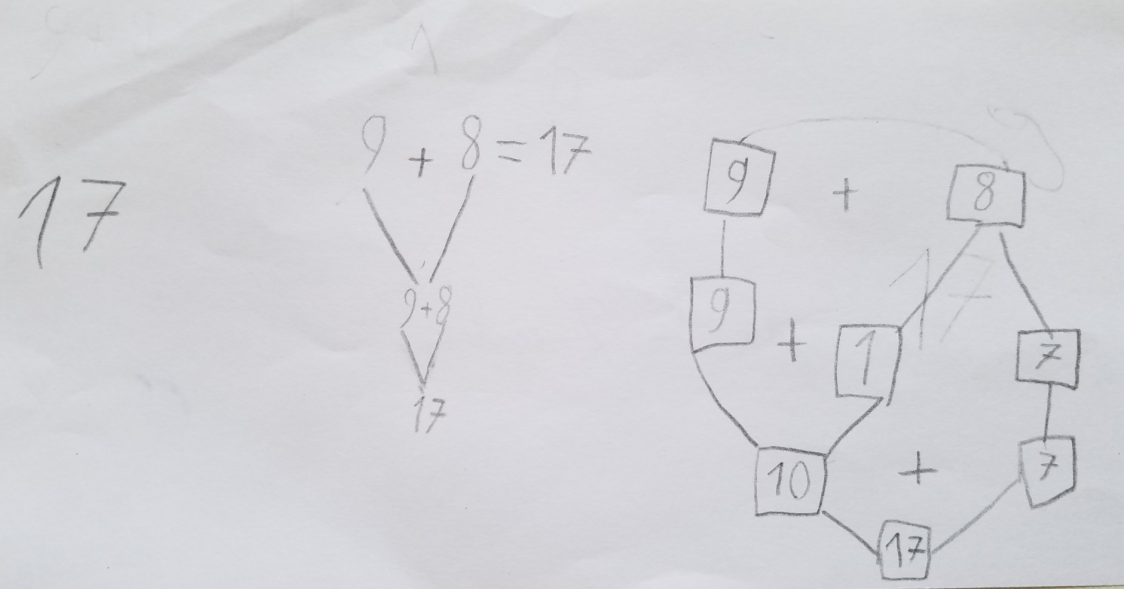 17
9 + 8 = 17
9+8
17
9 + 8
17
9 + 1 7
10 + 7
17